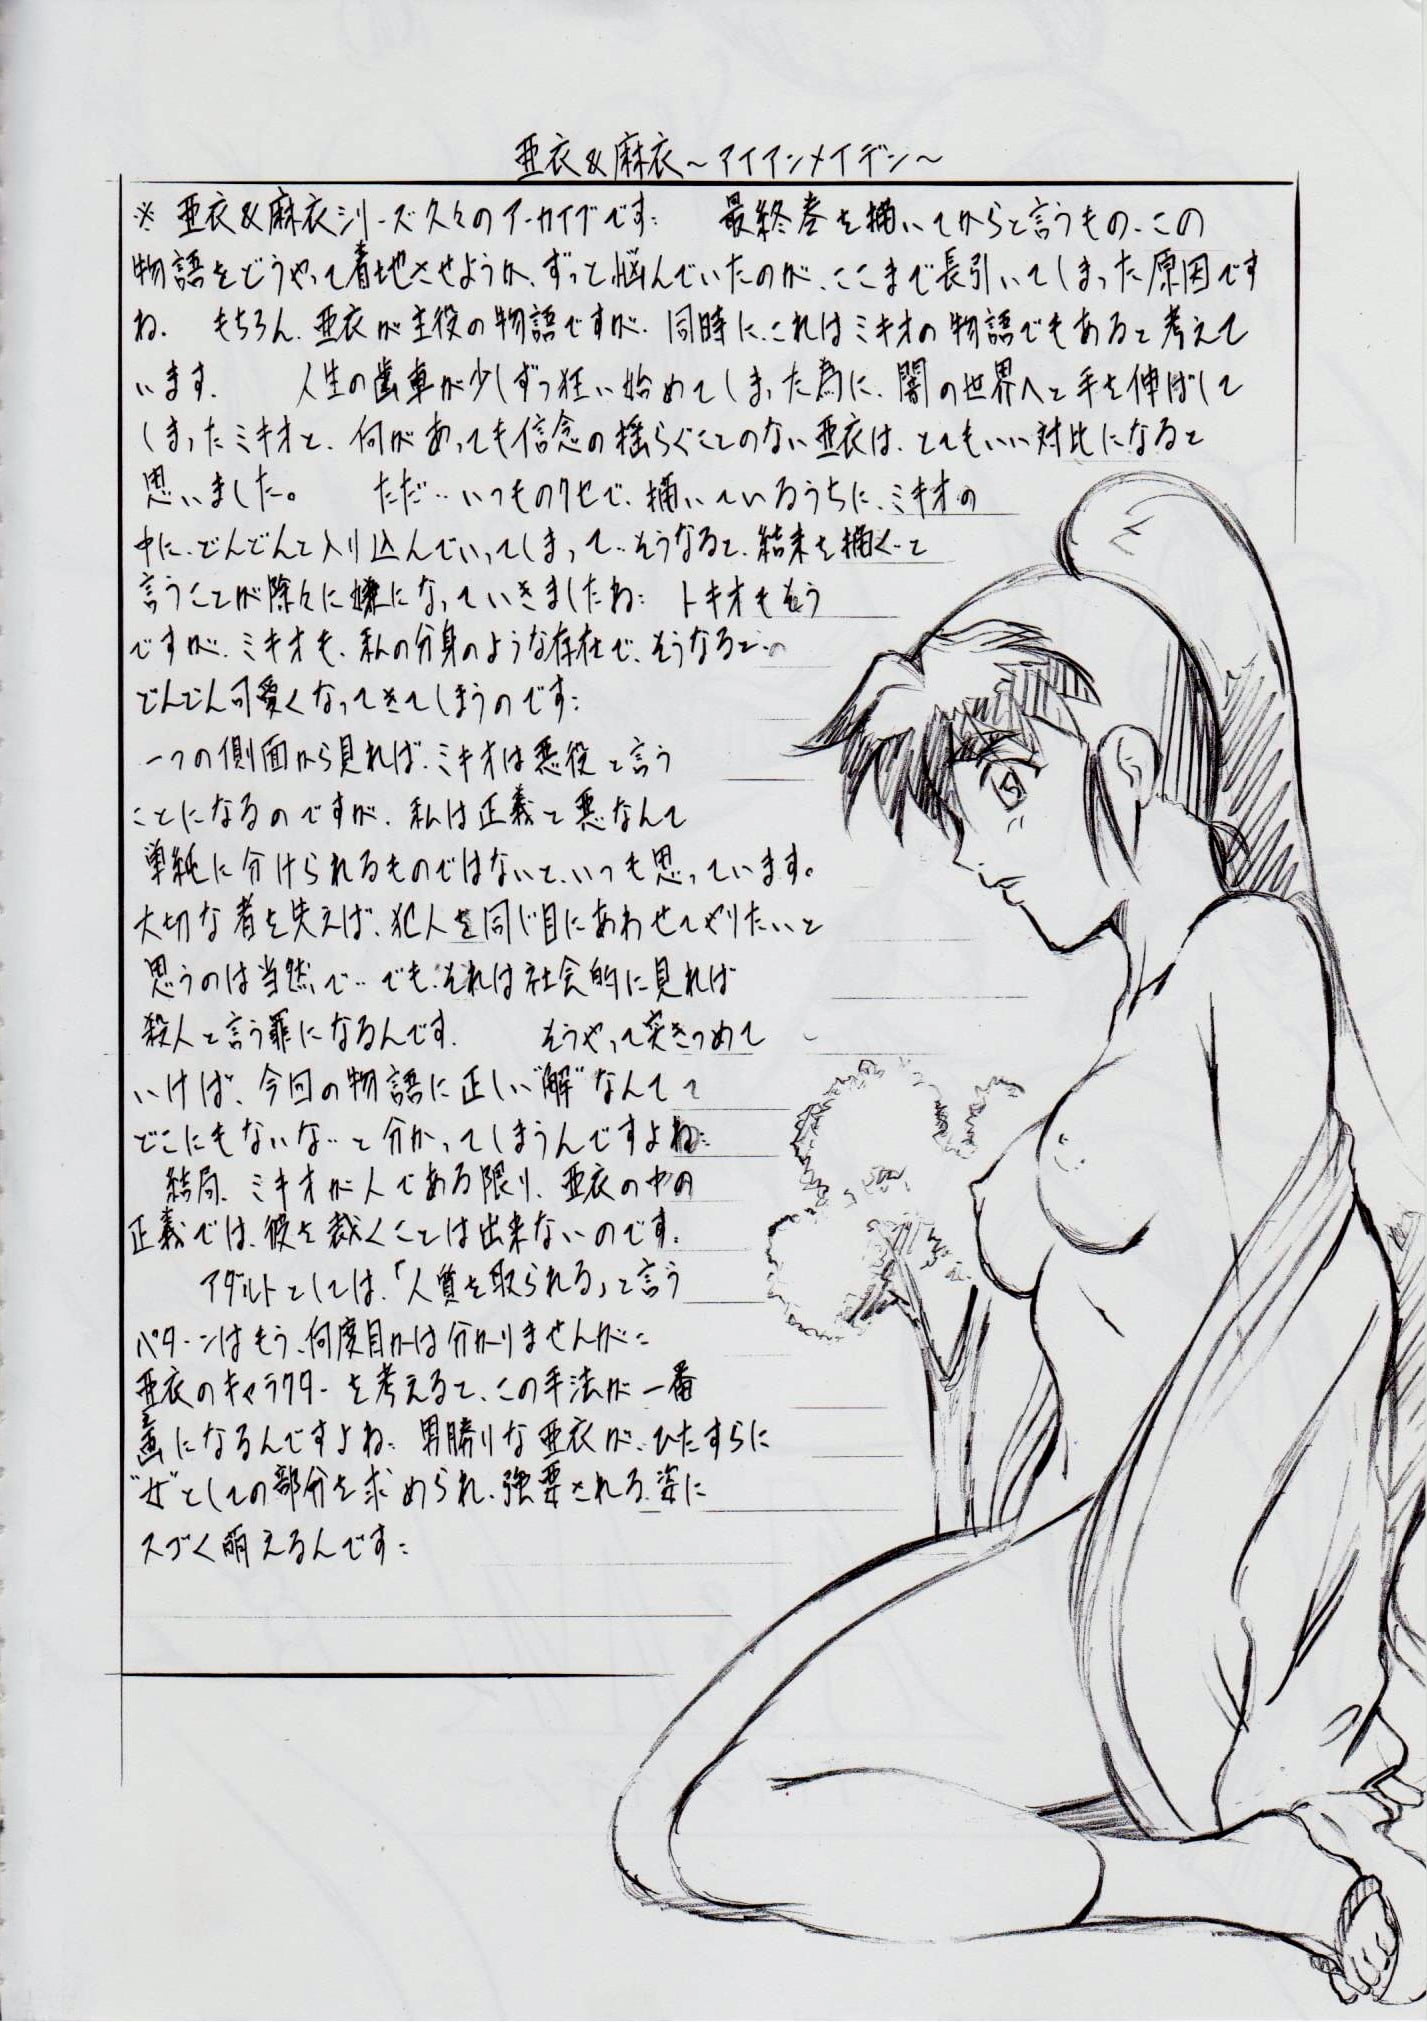 亜衣&麻衣～アイアンメイデン～
※ 亜衣&麻衣シリーズ久々のアーカイブです‥ 最終巻を描いてからと言うもの、この
物語をどうやって着地させようか、ずっと悩んでいたのが、ここまで長引いてしまった原因です
ね. もちろん、亜衣が主役の物語ですが、同時に、これはミキオの物語でもあると考えて
います. 人生の歯車が少しずつ狂い始めてしまった為に、闇の世界へと手を伸ばして
しまったミキオと、何があっても信念の揺らぐことのない亜衣は、とてもいい対比になると
思いました。 ただ‥いつものクセで、描いているうちに、ミキオの
中に、どんどんと入り込んでいってしまって‥そうなると、結末を描く‥と
言うことが除々に嫌になっていきましたね‥ トキオもそう
ですが、ミキオも、私の分身のような存在で、そうなると‥の
どんどん可愛くなってきてしまうのです‥
一つの側面から見れば、ミキオは悪役と言う
ことになるのですが、私は正義と悪なんて
単純に分けられるものではないと、いつも思っています。
大切な者を失えば、犯人を同じ目にあわせてやりたいと
思うのは当然で‥でも、それは社会的に見れば
殺人と言う罪になるんです. そうやって突きつめて
いけば、今回の物語に正しい"解"なんて
どこにもないな‥と分かってしまうんですよね‥
結局、ミキオが人である限り、亜衣の中の
正義では、彼を裁くことは出来ないのです.
アダルトとしては、「人質を取られる」と言う
パターンはもう、何度目かは分かりませんが‥
亜衣のキャラクターを考えると、この手法が一番
画になるんですよね‥ 男勝りな亜衣が、ひたすらに
"女"としての部分を求められ、強要される姿に
スゴく萌えるんです‥